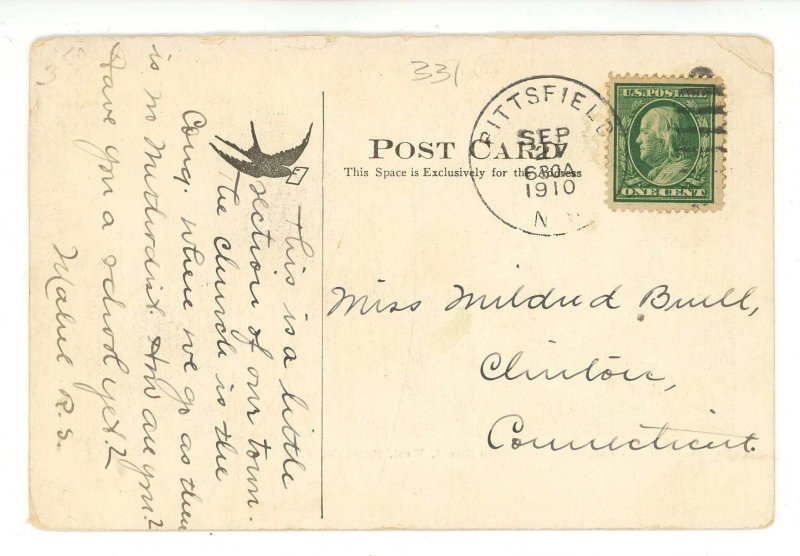 331
POST CARD
This Space is Exclusively for the Address
PITTSFIELD
SEP
630A
1910
N
U.S. POSTAGE
ONE CENT
This is a little
section of our town.
The church is the
Cong. where we go as there
is no Methodist. How are you?
Have you a school yet?
Mabel R. S.
Miss Mildred Buell,
Clinton,
Connecticut.